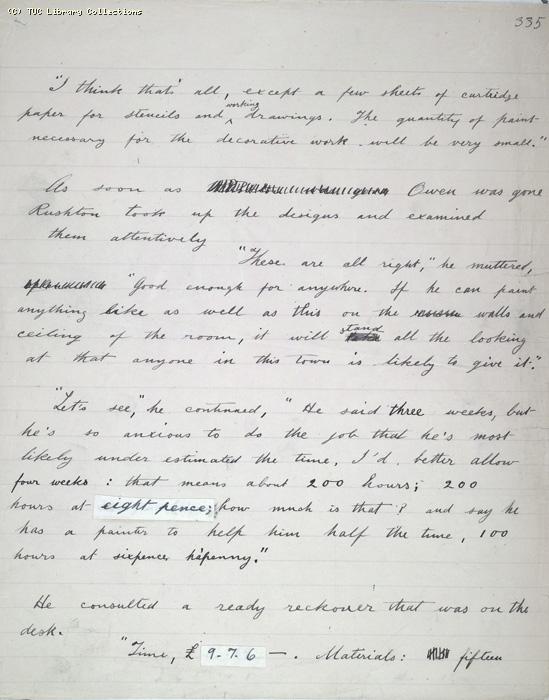 (C) TUC Library Collections
335
"I think that's all, except a few sheets of cartridge
paper for stencils and working drawings. The quantity of paint
necessary for the decorative work will be very small."
As soon as Owen was gone
Rushton took up the designs and examined
them attentively
"These are all right," he muttered,
"Good enough for anywhere. If he can paint
anything like as well as this on the walls and
ceiling of the room, it will stand all the looking
at that anyone in this town is likely to give it."
"Let's see," he continued, "He said three weeks, but
he's so anxious to do the job that he's most
likely under estimated the time, I'd better allow
four weeks: that means about 200 hours; 200
hours at eight pence; how much is that? and say he
has a painter to help him half the time, 100
hours at sixpence ha'penny."
He consulted a ready reckoner that was on the
desk.
"Time, £ 9.7.6 —. Materials: fifteen